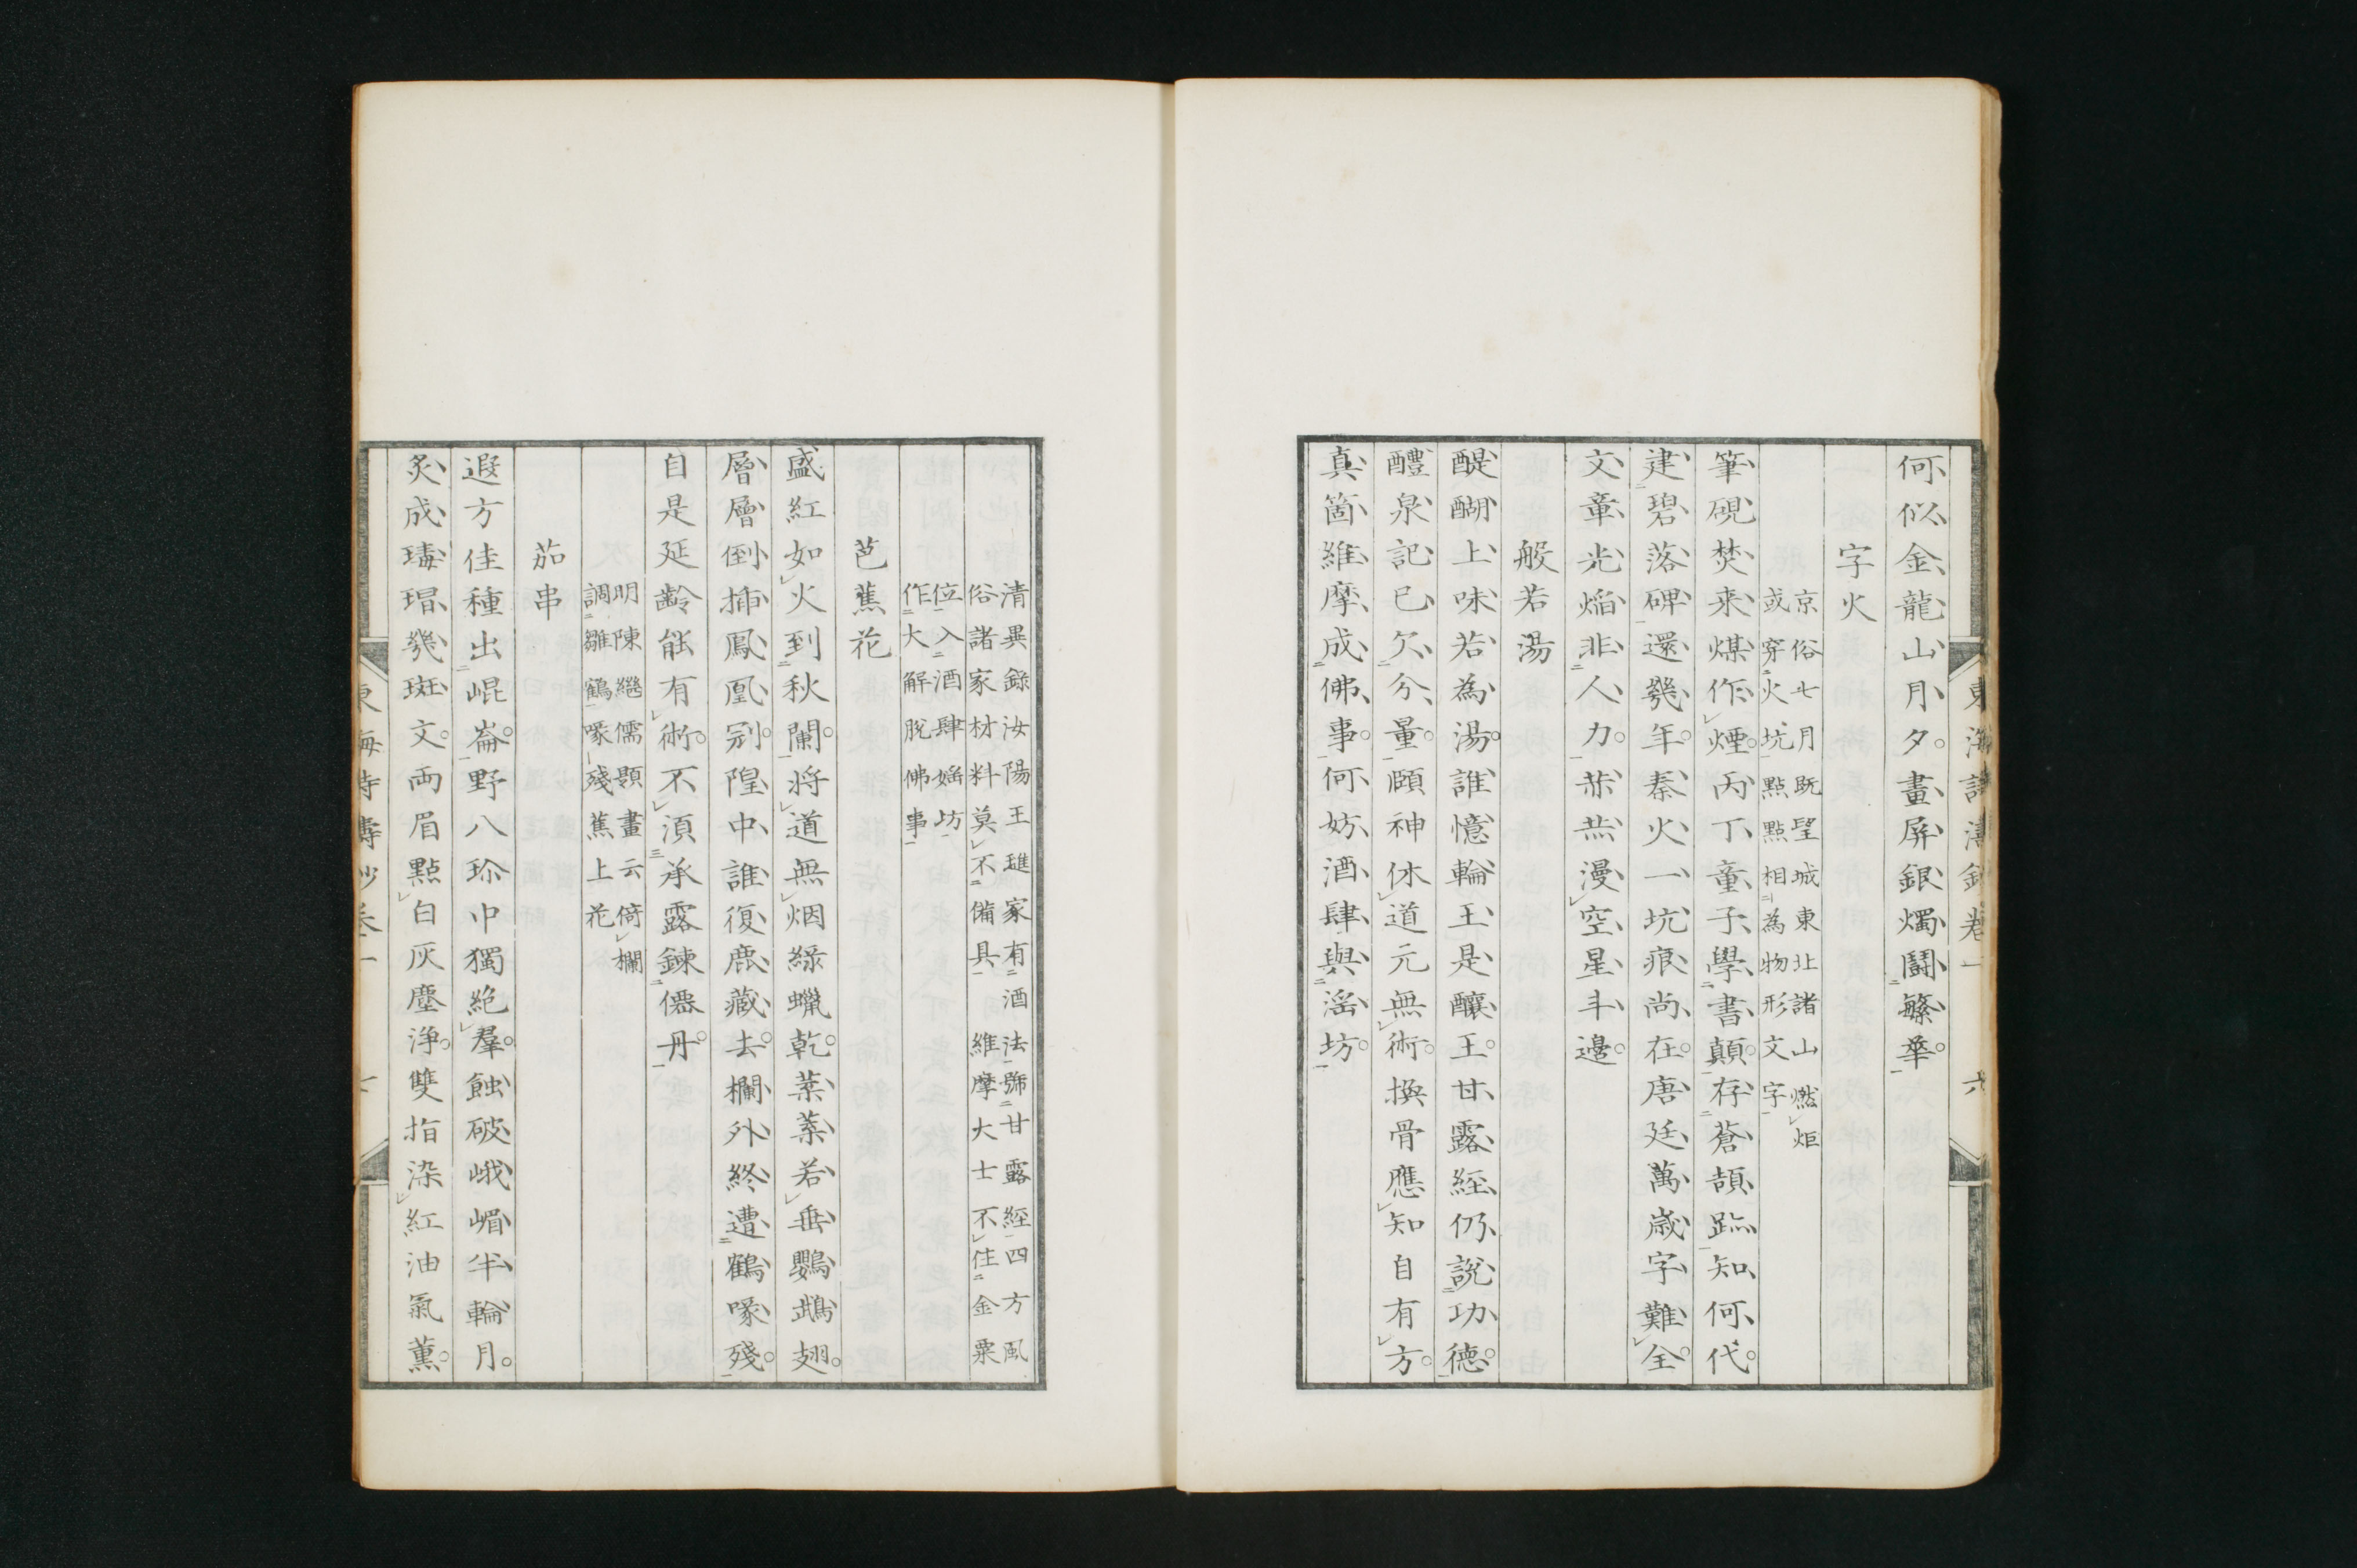 何似金龍山月夕。畫屏銀燭鬪繁華。
字火
京俗七月既望城東北諸山燃炬
或穿火坑點點相為物形文字
筆硯焚来煤作煙。丙丁童子學書顛。存蒼頡跡知何代。
建碧落碑還幾年。秦火一坑痕尚在。唐廷萬歲字難全。
文章光焔非人力。赫赫漫空星斗邊。
般若湯
醍醐上味若為湯。誰憶輪王是釀王。甘露經仍說功德。
醴泉記已欠分量。頤神休道元無術。換骨應知自有方。
真箇維摩成佛事。何妨酒肆與滛坊。
清異錄汝陽王璡家有酒法號甘露經四方風
俗諸家材料莫不備具 維摩大士不住金粟
位入酒肆婬坊
作大解脫佛事
芭蕉花
盛紅如火到秋闌。將道無烟綠蠟乾。葉葉若垂鸚鵡翅。
層層倒揷鳳凰冠。隍中誰復鹿藏去。欄外終遭鶴喙殘。
自是延齡能有術。不須承露鍊僊丹。
明陳繼儒題畫云倚欄
調雛鶴喙殘蕉上花
茄串
遐方佳種出崐崙。野八珎中獨絶羣。蝕破峨嵋半輪月。
炙成瑇瑁幾斑文。両眉點白灰塵浄。雙指染紅油氣薰。
東海詩濤鈔卷一 六